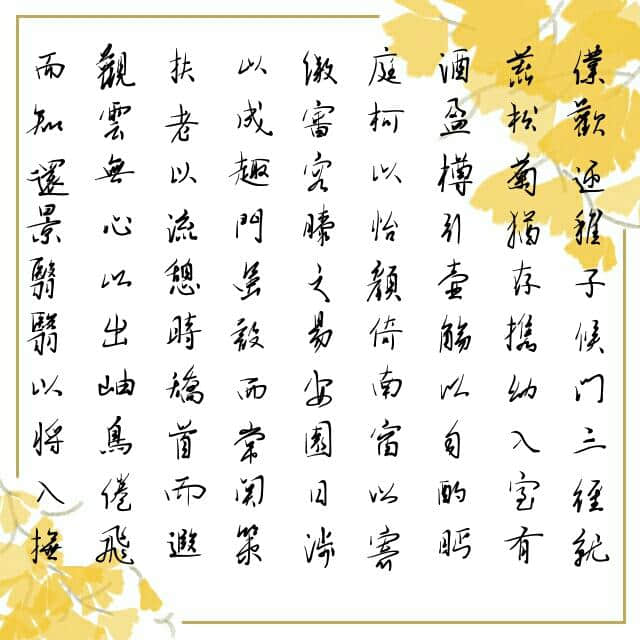 僕歡迎稚子候门三徑就
荒松菊猶存攜幼入室有
酒盈樽引壺觴以自酌眄
庭柯以怡顏倚南窗以寄
傲審容膝之易安園日涉
以成趣門雖設而常関策
扶老以流憩時矯首而遐
觀雲無心以出岫鳥倦飛
而知還景翳翳以將入撫